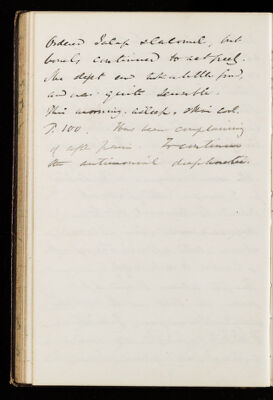 Ordered Jalap & Calomel, but
bowels continued to act freely.
She slept and took a little food,
and was quite sensible.
This morning asleep, skin cool.
P. 100. Has been complaining
of after pains. To continue
the antimonial diaphoretic.